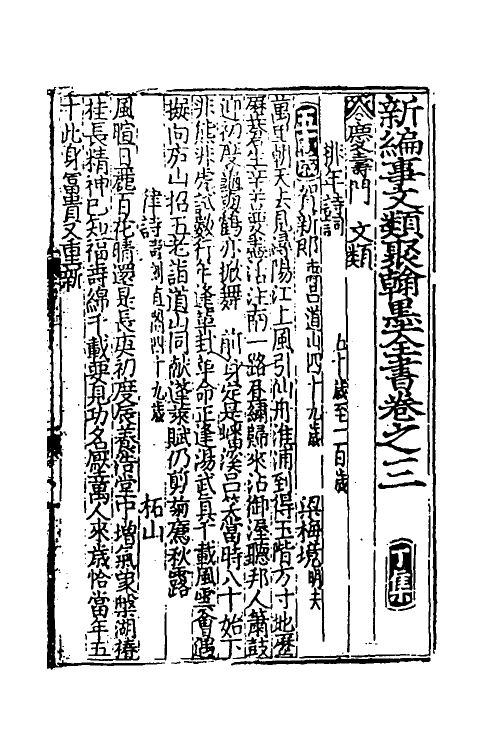 新編事文類聚翰墨全書卷之三 丁集
慶壽門 文類
排年詩詞 五十歲至一百歲
五十 賀新郎 壽呂道山四十九歲 梁梅境明夫
萬里朝天去見潯陽江上風引仙舟淮浦到得玉階方寸地歷
歷蒼生辛苦要惠沾淮南一路晝繡歸來沾御渥聽邦人簫鼓
迎初度龜與鶴亦掀舞 前身定是蟠溪呂笑當時八十始卜
非熊非虎試數行年逢單卦革命正逢湯武真千載風雲會遇
擬向廬山招五老詣道山同獻蓬萊賦仍剪菊薦秋露
律詩 壽 四十九歲 柘山
風暄日麗百花晴還是長庚初度辰暮 堂中增氣象盤湖椿
桂長精神已知福壽綿千載要見功名壓萬人來歲恰當年五
十此身富貴又重新